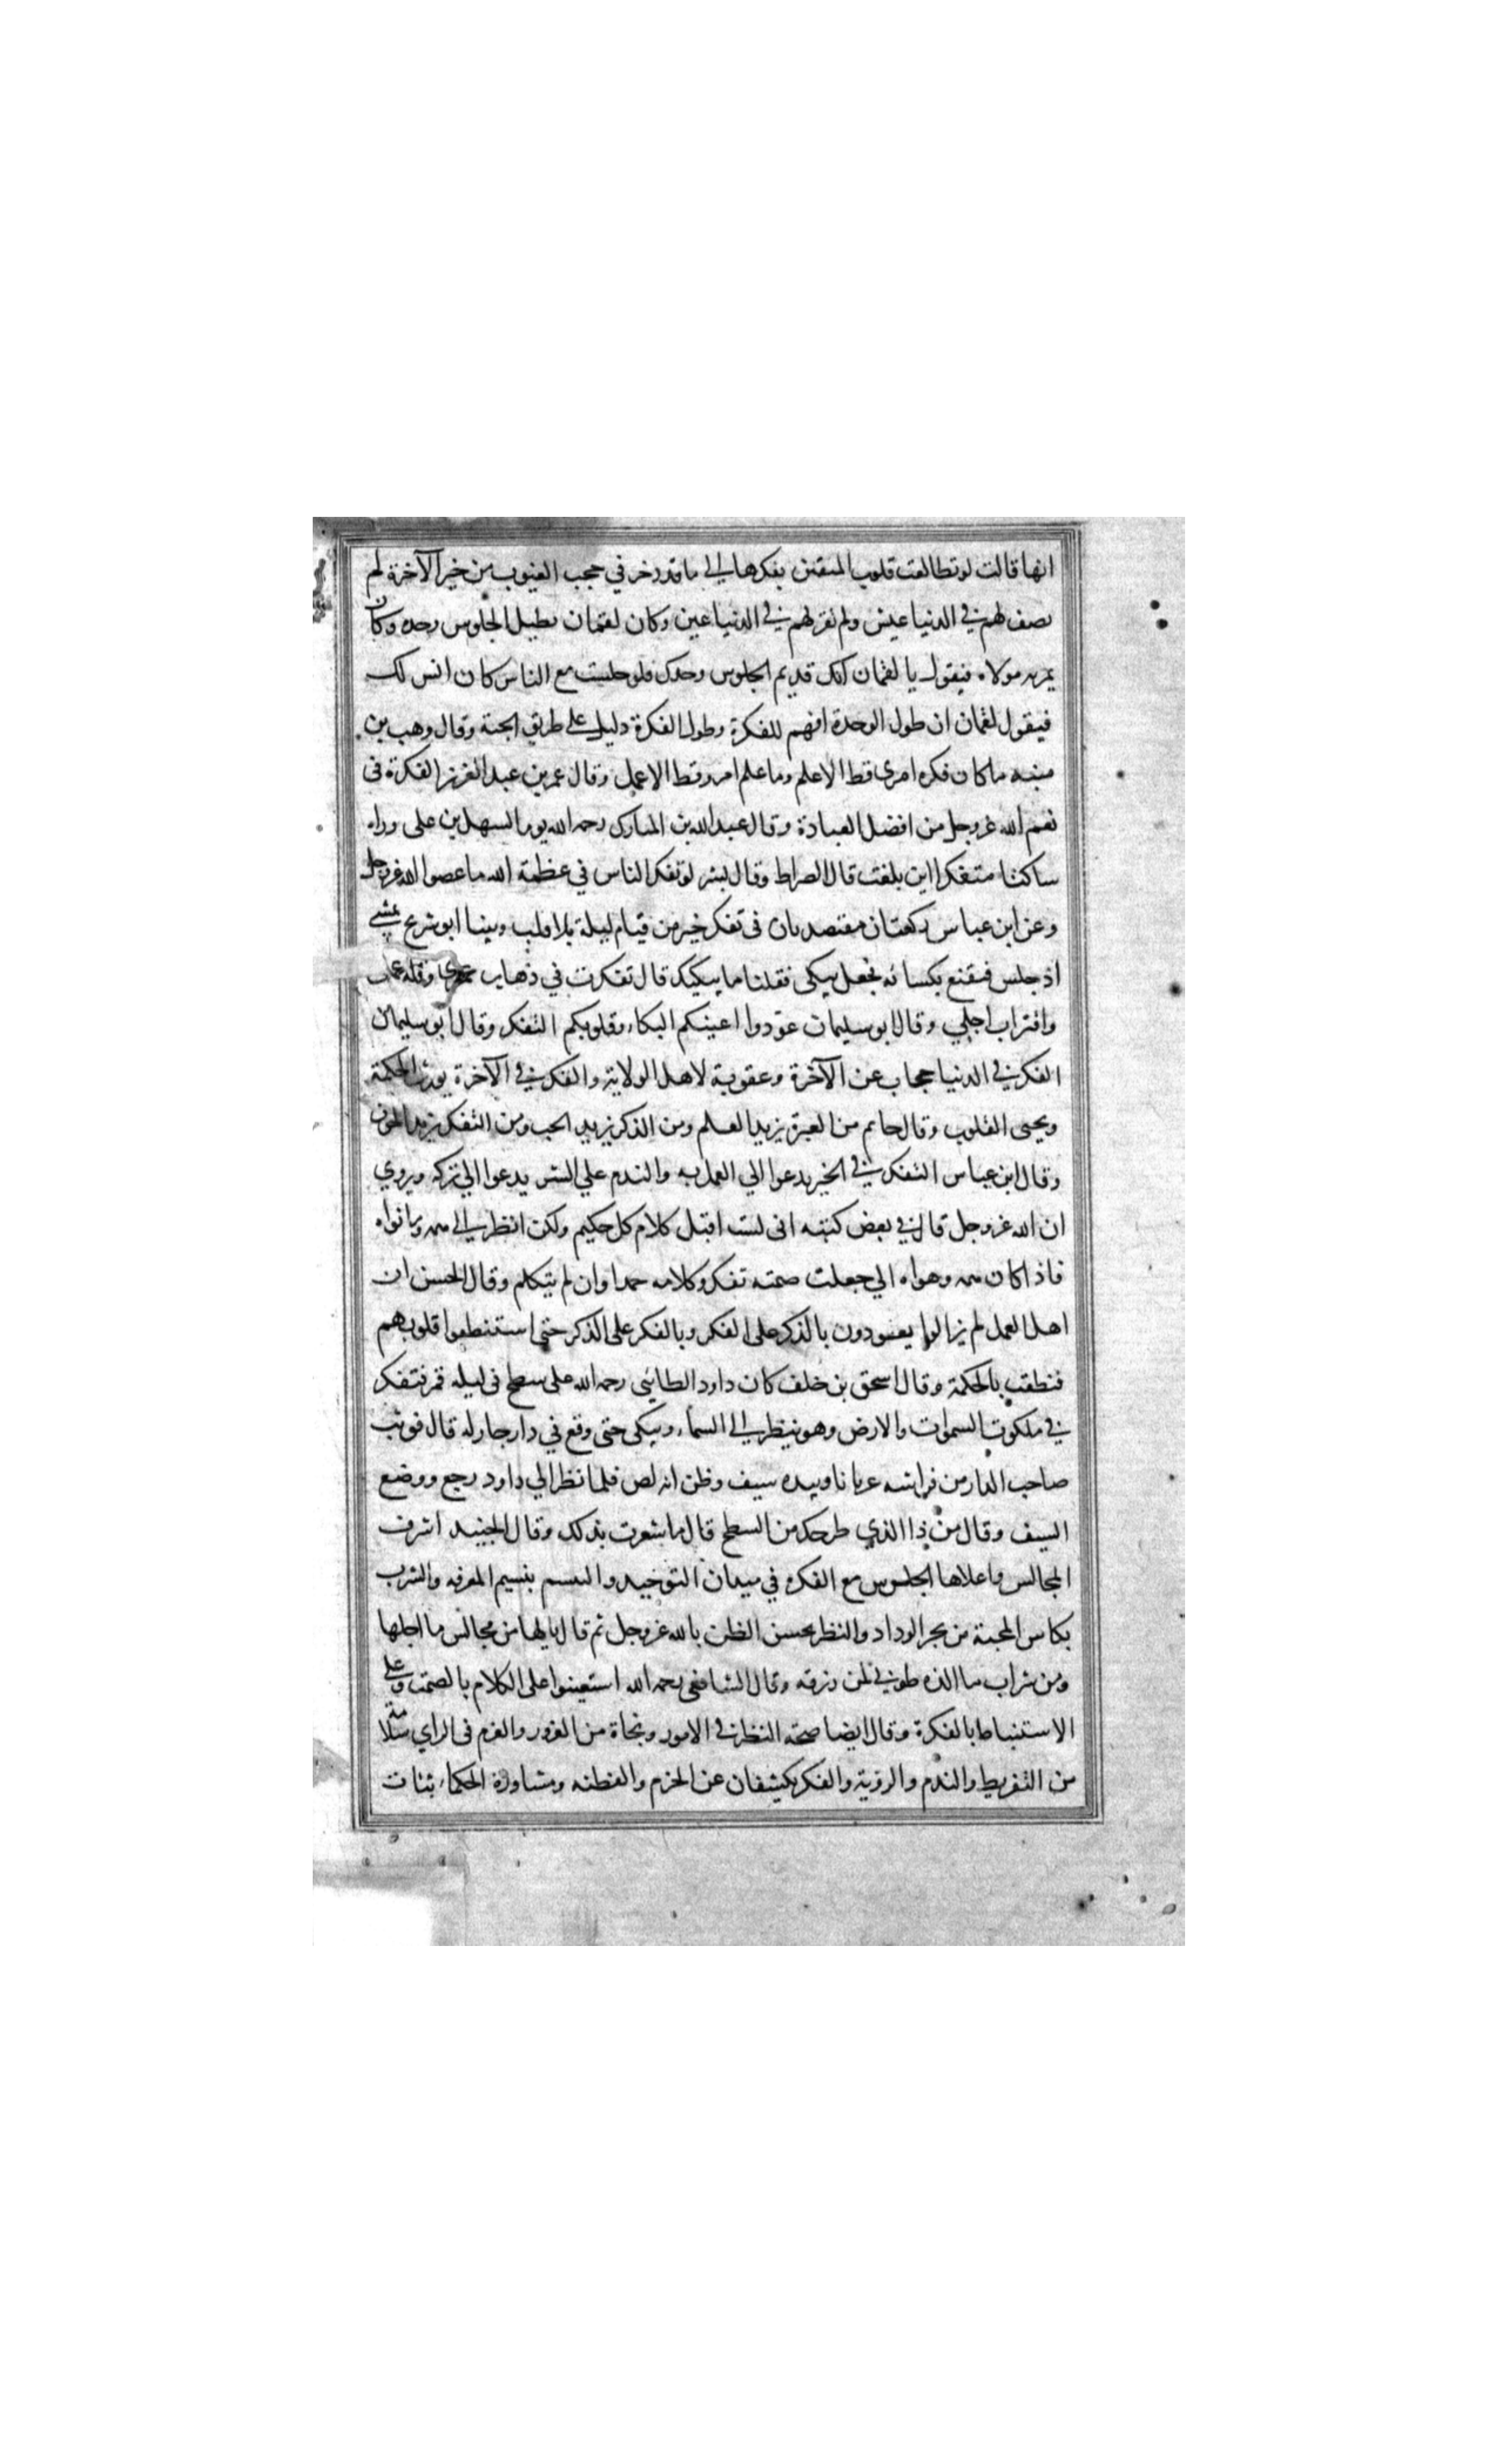 انها قالت لو تطالعت قلوب المتقين بفكرها الي ما قد دخر في حجب الغيوب من خير الآخرة لم
يصف لهم في الدنيا عيش ولم تقر لهم في الدنيا عين وكان لقمان يطيل الجلوس وحده وكان
يمر به مولاه فيقول يا لقمان انك تديم الجلوس وحدك فلو جلست مع الناس كان انس لك
فيقول لقمان ان طول الوحدة افهم للفكرة وطول الفكرة دليل على طريق الجنة وقال وهب بن
منبه ما كان فكره امرى قط الا علم وما علم امرو قط الا عمل وقال عمر بن عبد العزيز الفكرة في
نعم الله عز وجل من افضل العبادة وقال عبد الله بن المبارك رحمه الله يوما لسهل بن على وراه
ساكتا متفكرا اين بلغت قال الصراط وقال بشر لو تفكر الناس في عظمة الله ما عصوا الله عز وجل
وعن ابن عباس ركعتان مقتصدتان في تفكر خير من قيام ليلة بلا قلب وبينا ابو شريح يمشي
اذ جلس فتقنع بكسائه فجعل يبكى فقلنا ما يبكيك قال تفكرت في ذهاب عمري وقلة عملي
واقتراب اجلي وقال ابو سليمان عودوا اعينكم البكاء وقلوبكم التفكر وقال ابو سليمان
الفكر في الدنيا حجاب عن الآخرة وعقوبة لاهل الولاية والفكر في الآخرة يورث الحكمة
ويحيى القلوب وقال حاتم من العبرة يزيد العلم ومن الذكر يزيد الحب ومن التفكر يزيد الخوف
وقال ابن عباس التفكر في الخير يدعوا الي العمل به والندم علي الشر يدعوا الي تركه ويروي
ان الله عز وجل قال في بعض كتبه انى لست اقبل كلام كل حكيم ولكن انظر الي همه وهواه
فاذا كان همه وهواه الي جعلت صمته تفكر وكلامه حمدا وان لم يتكلم وقال الحسن ان
اهل العمل لم يزالوا يعودون بالذكر على الفكر وبالفكر على الذكر حتى استنطقوا قلوبهم
فنطقت بالحكمة وقال اسحق بن خلف كان داود الطائي رحمه الله على سطح في ليله قمر فتفكر
في ملكوت السموات والارض وهو ينظر الي السماء ويبكى حتى وقع في دار جار له قال فوثب
صاحب الدار من فراشه عريانا وبيده سيف وظن انه لص فلما نظر الي داود رجع ووضع
السيف وقال من ذا الذي طرحك من السطح قال ما شعرت بذلك وقال الجنيد اشرف
المجالس واعلاها الجلوس مع الفكره في ميدان التوحيد والتنسم بنسيم المعرفه والشرب
بكاس المحبة من بحر الوداد والنظر بحسن الظن بالله عز وجل ثم قال يا لها من مجالس ما اجلها
ومن شراب ما الذه طوبي لمن رزقه وقال الشافعى رحمه الله استعينوا على الكلام بالصمت وعلى
الاستنباط بالفكرة وقال ايضا صحه النظر في الامور ونجاة من الغرور والعزم في الراي سلامة
من التفريط والندم والروية والفكر يكشفان عن الحزم والفطنه ومشاورة الحكماء ثبات